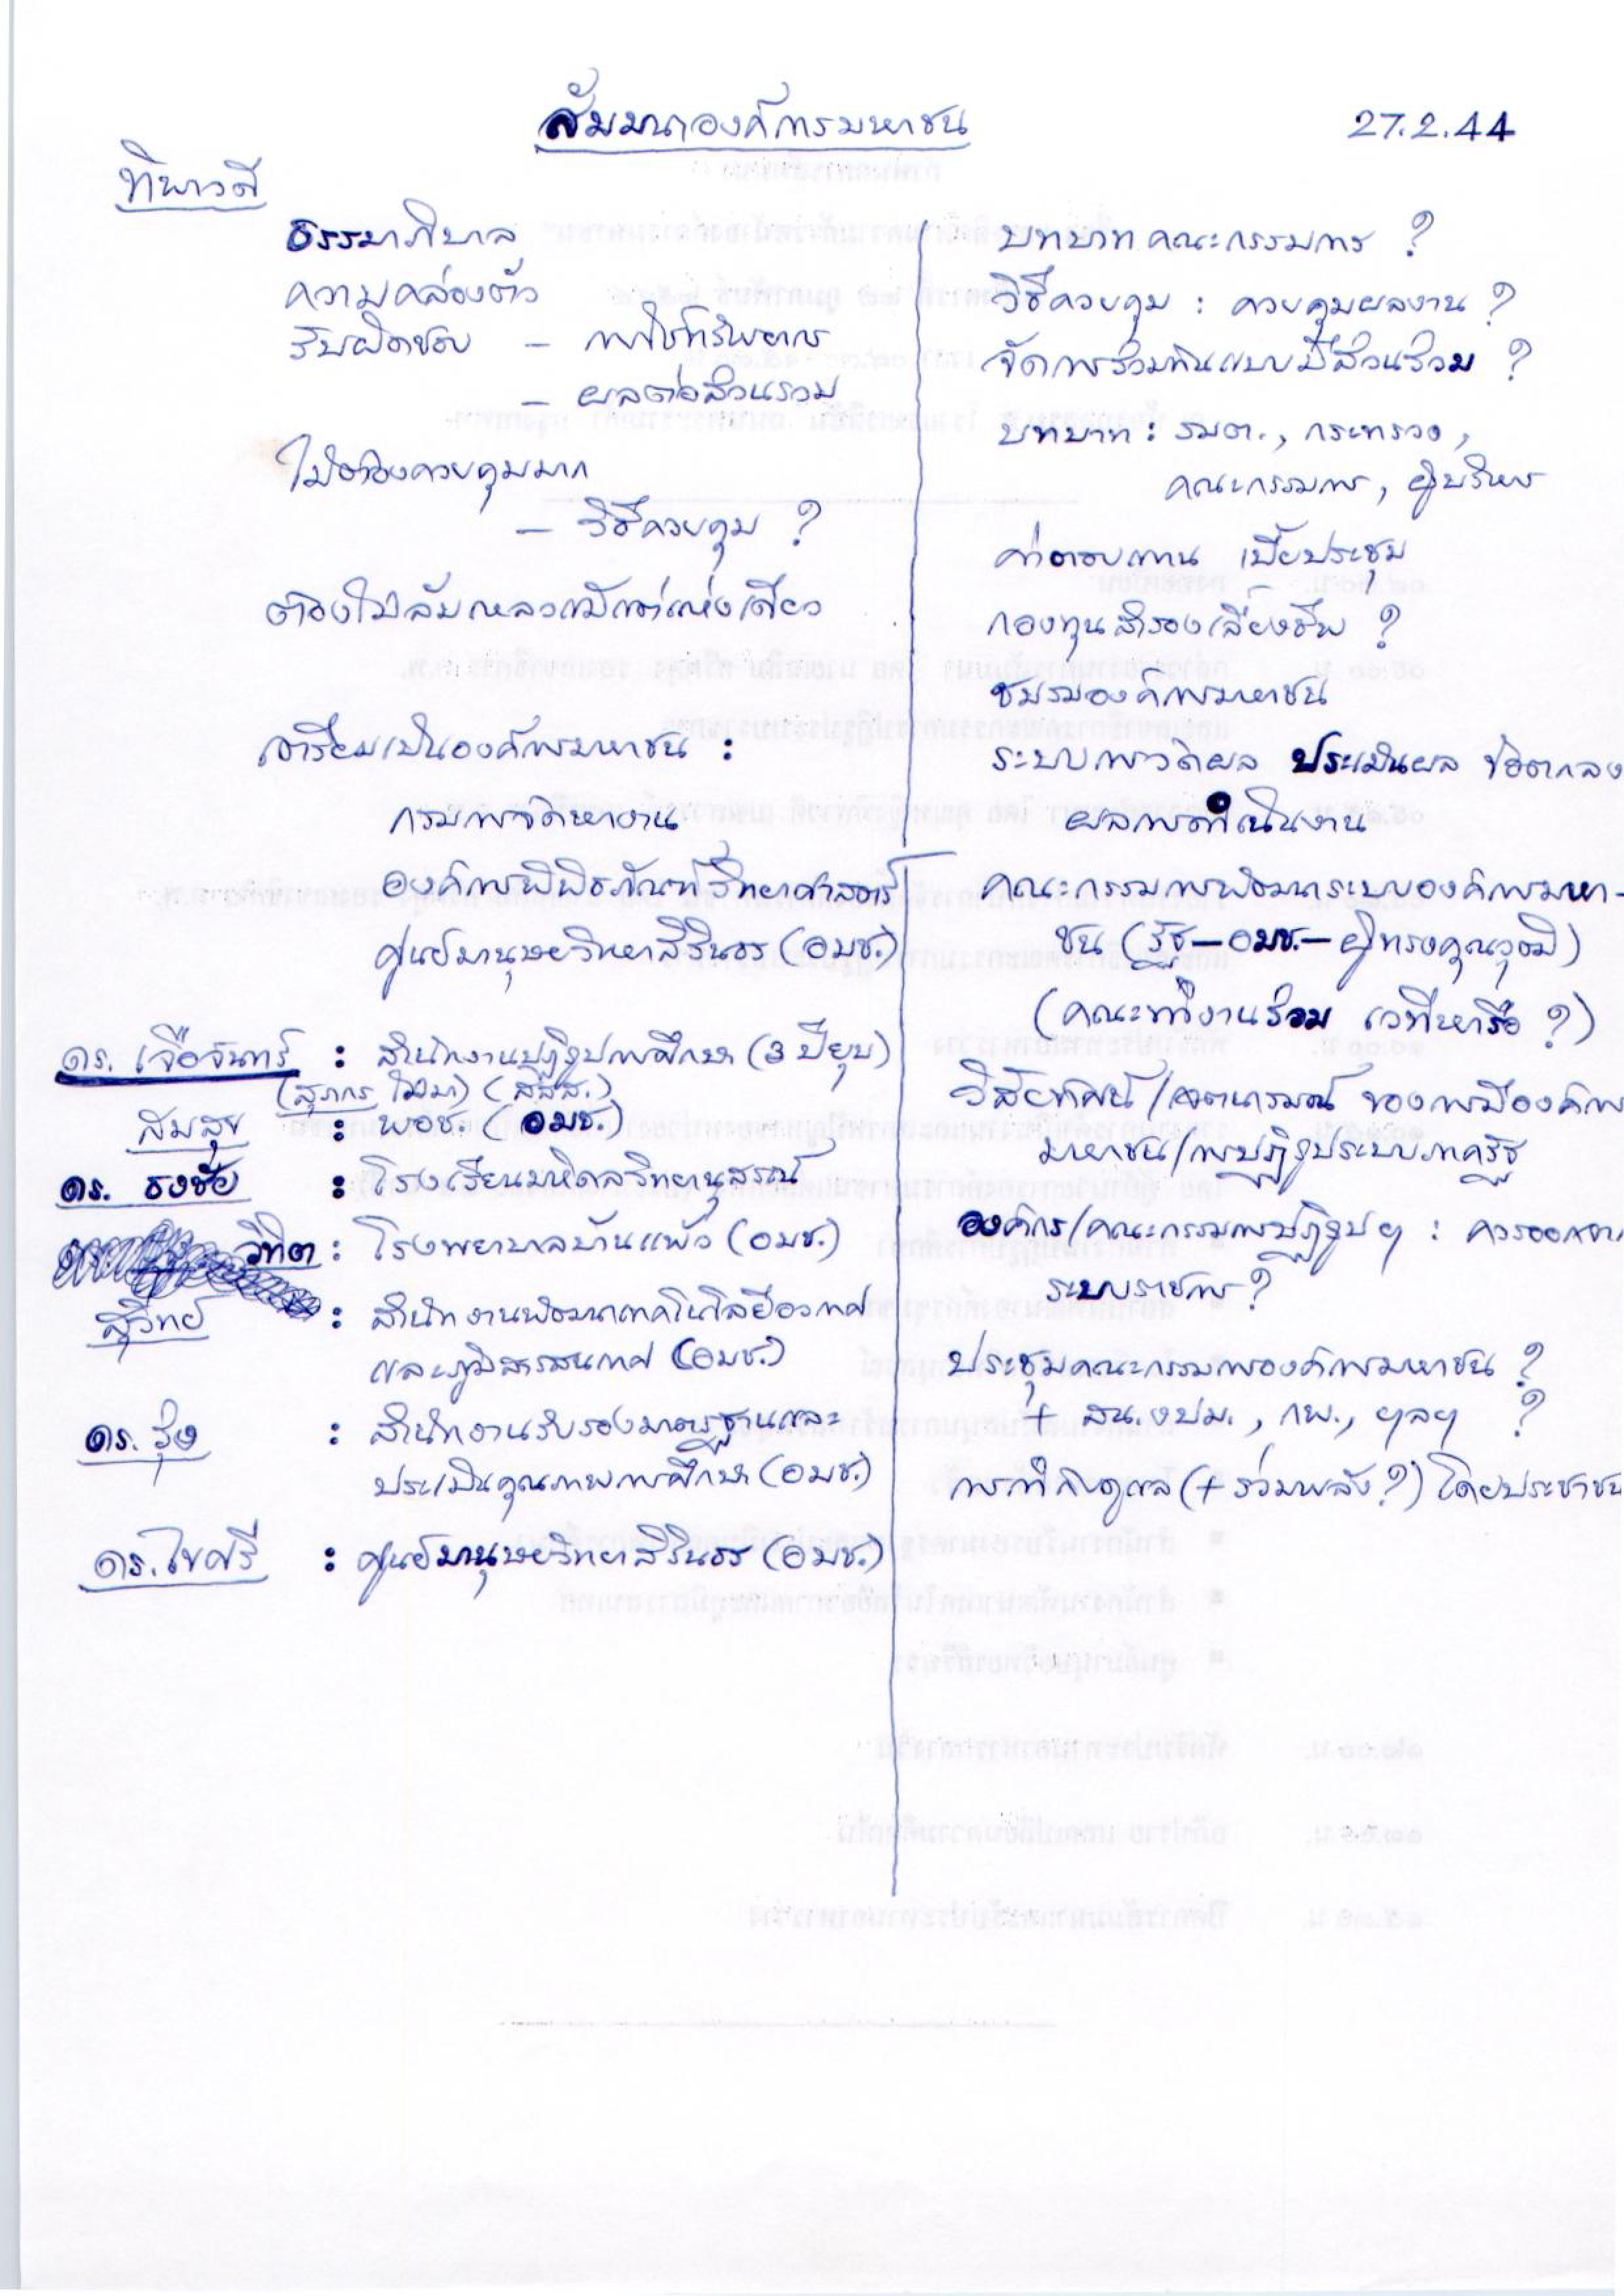 สัมมนาองค์การมหาชน
27.2.44
ทิพาวดี
ธรรมาภิบาล
ความคล่องตัว
รับผิดชอบ – การใช้ทรัพยากร
– ผลต่อส่วนรวม
ไม่ต้องควบคุมมาก
– วิธีควบคุม ?
ต้องไม่ล้มเหลวแม้แต่แห่งเดียว
เตรียมเป็นองค์การมหาชน :
กรมการจัดหางาน
องค์การพิพิธภัณฑ์วิทยาศาสตร์
ศูนย์มานุษยวิทยาสิรินธร (อมช.)
ดร. เจือจันทร์ : สำนักงานปฏิรูปการศึกษา (3 ปียุบ)
(สุภกร ไม่มา) (สสส.)
สมสุข : พอช. (อมช.)
ดร. ธงชัย : โรงเรียนมหิดลวิทยานุสรณ์
วิทิต : โรงพยาบาลบ้านแพ้ว (อมช.)
สุวิทย์ : สำนักงานพัฒนาเทคโนโลยีอวกาศ
และภูมิสารสนเทศ (อมช.)
ดร. รุ่ง : สำนักงานรับรองมาตรฐานและ
ประเมินคุณภาพการศึกษา (อมช.)
ดร. ไขศรี : ศูนย์มานุษยวิทยาสิรินธร (อมช.)
บทบาทคณะกรรมการ ?
วิธีควบคุม : ควบคุมผลงาน ?
จัดการร่วมกันแบบมีส่วนร่วม ?
บทบาท : รมต., กระทรวง,
คณะกรรมการ, ผู้บริหาร
ค่าตอบแทน เบี้ยประชุม
กองทุนสำรองเลี้ยงชีพ ?
ชมรมองค์การมหาชน
ระบบการวัดผล ประเมินผล ข้อตกลง
ผลการดำเนินงาน
คณะกรรมการพัฒนาระบบองค์การมหา-
ชน (รัฐ–อมช.–ผู้ทรงคุณวุฒิ)
(คณะทำงานร่วม เวทีหารือ ?)
วิสัยทัศน์/เจตนารมณ์ ของการมีองค์การ
มหาชน/การปฏิรูประบบภาครัฐ
องค์กร/คณะกรรมการปฏิรูปฯ : ควรออกจาก
ระบบราชการ ?
ประชุมคณะกรรมการองค์การมหาชน ?
+ สน.งปม., กพ., ฯลฯ ?
การกำกับดูแล (+ ร่วมพลัง ?) โดยประชาชน